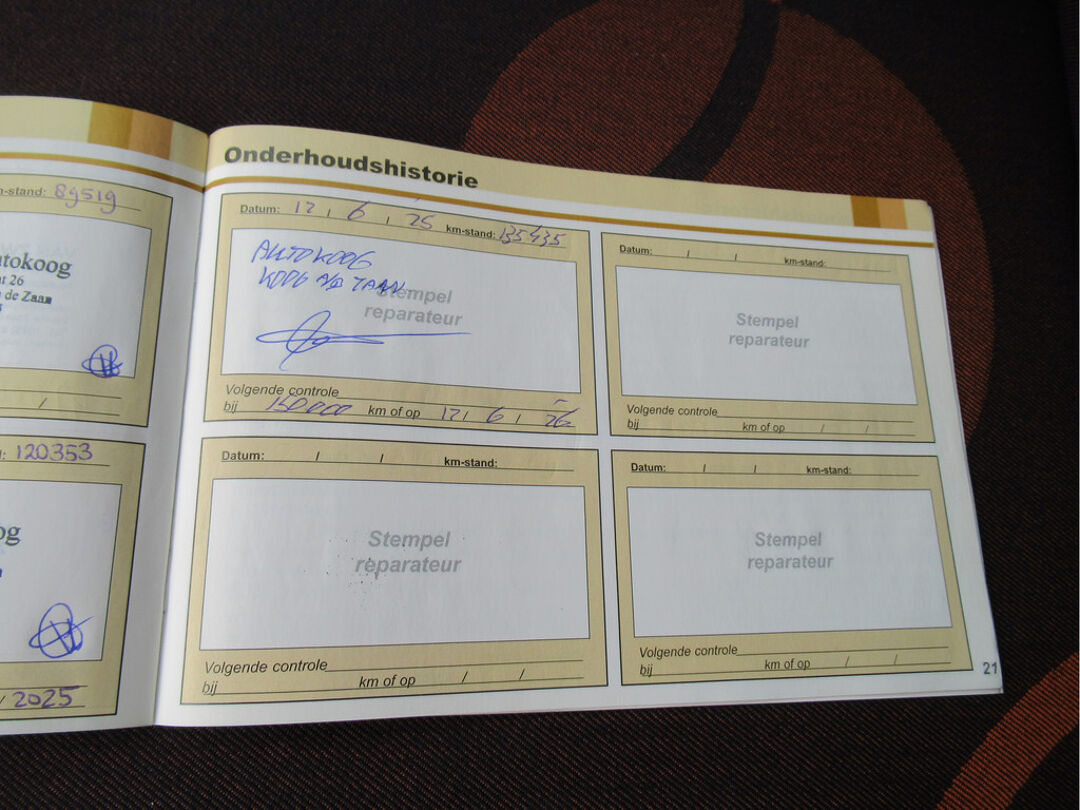 m-stand: 89519
utokoog
at 26
n de Zaan
: 120353
og
/ 2025
Onderhoudshistorie
Datum: 12 / 6 / 25 km-stand: 135435
AUTOKOOG
KOOG A/D ZAAN
Stempel
reparateur
Volgende controle
bij 150000 km of op 12 / 6 / 26
Datum: / / km-stand:
Stempel
reparateur
Volgende controle
bij km of op / /
Datum: / / km-stand:
Stempel
reparateur
Volgende controle
bij km of op / /
Datum: / / km-stand:
Stempel
reparateur
Volgende controle
bij km of op / /
21